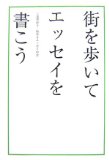 街を歩いて
エッセイを
書こう